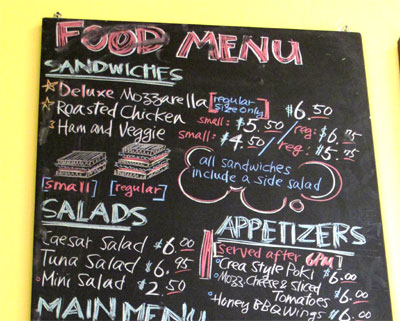 FOOD MENU
SANDWICHES
Deluxe Mozzarella [regular size only] $6.50
Roasted Chicken small: $5.50 / reg: $6.75
Ham and Veggie small: $4.50 / reg: $5.75
all sandwiches
include a side salad
[small] [regular]
SALADS
Caesar Salad $6.00
Tuna Salad $6.95
Mini Salad $2.50
MAIN MENU
APPETIZERS
Served after 6PM!
Crea Style Poki $6.00
Mozz Cheese & Sliced
Tomatoes $6.00
Honey BBQ Wings $6.00